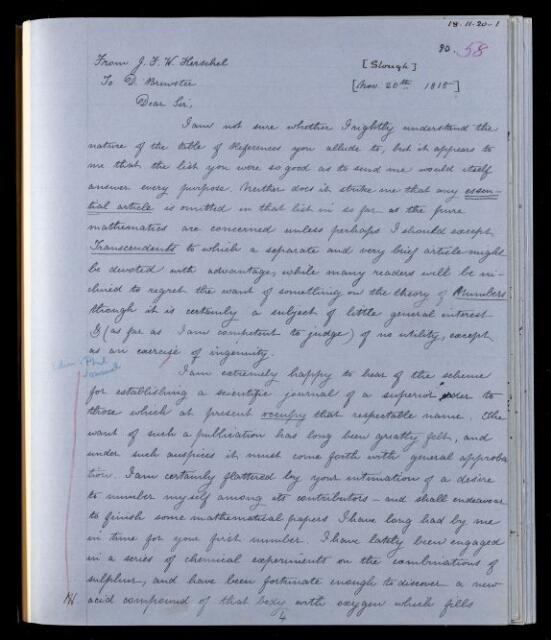 18-11-20-1
30. 58
From J. F. W. Herschel
[Slough]
To D. Brewster
[Nov. 20th 1818]
Dear Sir,
I am not sure whether I rightly understand the
nature of the table of References you allude to, but it appears to
me that the list you were so good as to send me would itself
answer every purpose. Neither does it strike me that any essen-
tial article is omitted in that list in so far as the pure
mathematics are concerned unless perhaps I should except
Transcendents to which a separate and very brief article might
be devoted with advantage, while many readers will be in-
clined to regret the want of something on the theory of Numbers
through it is certainly a subject of little general interest
& (as far as I am competent to judge) of no utility, except
as an exercise of ingenuity.
Edin. Phil
Journal
I am extremely happy to hear of the scheme
for establishing a scientific journal of a superior order to
those which at present occupy that respectable name. The
want of such a publication has long been greatly felt, and
under such auspices it must come forth with general approba
tion. I am certainly flattered by your intimation of a desire
to number myself among its contributors - and shall endeavour
to finish some mathematical papers I have long had by me
in time for your first number. I have lately been engaged
in a series of chemical experiments on the combinations of
sulphur, and have been fortunate enough to discover a new
acid compound of that body with oxygen which fills
4